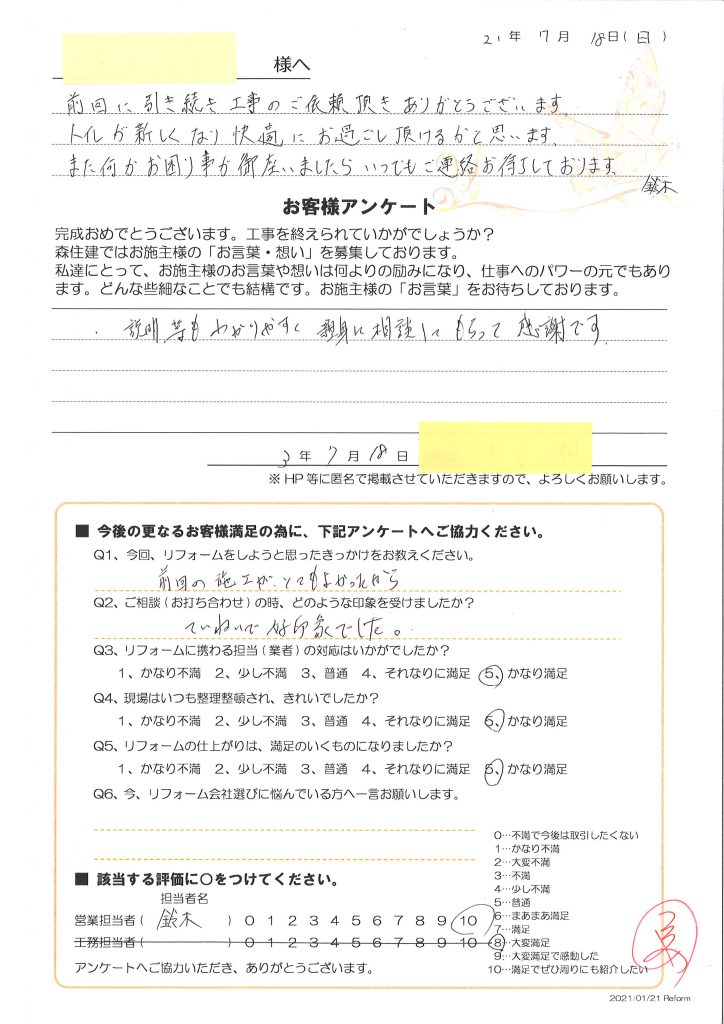 21年 7月 18日(日)
様へ
前回に引き続き工事のご依頼頂きありがとうございます。
トイレが新しくなり快適にお過ごし頂けるかと思います。
また何かお困り事が御座いましたらいつでもご連絡お待ちしております。
鈴木
お客様アンケート
完成おめでとうございます。工事を終えられていかがでしょうか?
森住建ではお施主様の「お言葉・想い」を募集しております。
私達にとって、お施主様のお言葉や想いは何よりの励みになり、仕事へのパワーの元でもあり
ます。どんな些細なことでも結構です。お施主様の「お言葉」をお待ちしております。
・説明等もわかりやすく親身に相談してもらって感謝です。
3年 7月 18日
※HP等に匿名で掲載させていただきますので、よろしくお願いします。
■ 今後の更なるお客様満足の為に、下記アンケートへご協力ください。
Q1、今回、リフォームをしようと思ったきっかけをお教えください。
前回の施工が、とてもよかったから
Q2、ご相談(お打ち合わせ)の時、どのような印象を受けましたか?
ていねいで好印象でした。
Q3、リフォームに携わる担当(業者)の対応はいかがでしたか?
1、かなり不満 2、少し不満 3、普通 4、それなりに満足 5、かなり満足
Q4、現場はいつも整理整頓され、きれいでしたか?
1、かなり不満 2、少し不満 3、普通 4、それなりに満足 5、かなり満足
Q5、リフォームの仕上がりは、満足のいくものになりましたか?
1、かなり不満 2、少し不満 3、普通 4、それなりに満足 5、かなり満足
Q6、今、リフォーム会社選びに悩んでいる方へ一言お願いします。
0…不満で今後は取引したくない
1…かなり不満
2…大変不満
3…不満
4…少し不満
5…普通
6…まあまあ満足
7…満足
8…大変満足
9…大変満足で感動した
10…満足でぜひ周りにも紹介したい
■ 該当する評価に〇をつけてください。
担当者名
営業担当者( 鈴木 ) 0 1 2 3 4 5 6 7 8 9 10
工務担当者( ) 0 1 2 3 4 5 6 7 8 9 10
アンケートへご協力いただき、ありがとうございます。
2021/01/21 Reform